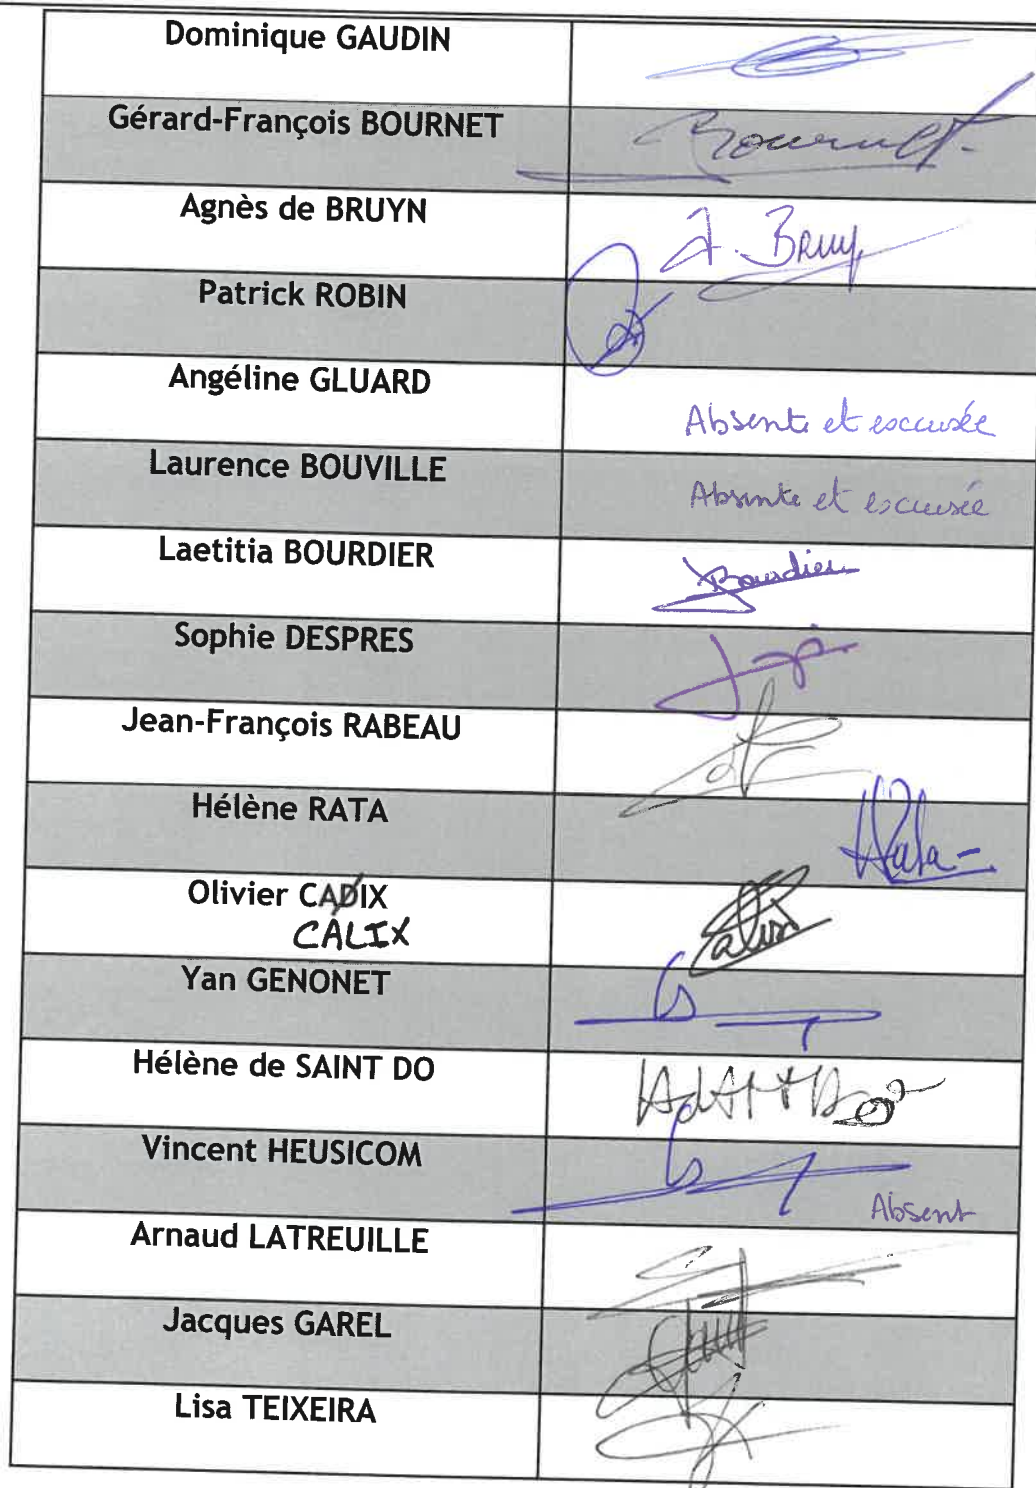 Dominique GAUDIN
Gérard-François BOURNET
Bournet
Agnès de BRUYN
A. Bruy
Patrick ROBIN
Angéline GLUARD
Absente et excusée
Laurence BOUVILLE
Absente et excusée
Laetitia BOURDIER
Bourdier
Sophie DESPRES
Jean-François RABEAU
Hélène RATA
HRata
Olivier CADIX
CALIX
Calix
Yan GENONET
Hélène de SAINT DO
Vincent HEUSICOM
Absent
Arnaud LATREUILLE
Jacques GAREL
Lisa TEIXEIRA